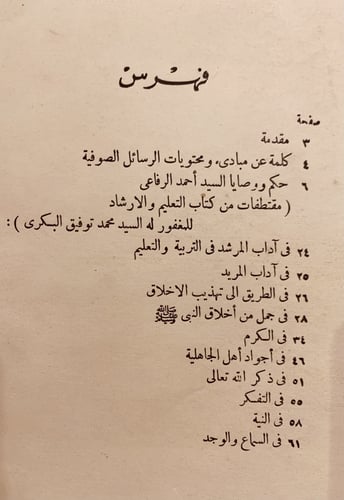 فهرس
صفحة
٣ مقدمة
٤ كلمة عن مبادىء ومحتويات الرسائل الصوفية
٦ حكم ووصايا السيد أحمد الرفاعى
( مقتطفات من كتاب التعليم والارشاد
للمغفور له السيد محمد توفيق البكرى ) :
٢٤ فى آداب المرشد فى التربية والتعليم
٢٥ فى آداب المريد
٢٦ فى الطريق الى تهذيب الاخلاق
٢٨ فى جمل من أخلاق النبى ﷺ
٣٤ فى الكرم
٤٦ فى أجواد أهل الجاهلية
٥١ فى ذكر الله تعالى
٥٥ فى التفكر
٥٨ فى النية
٦١ فى السماع والوجد